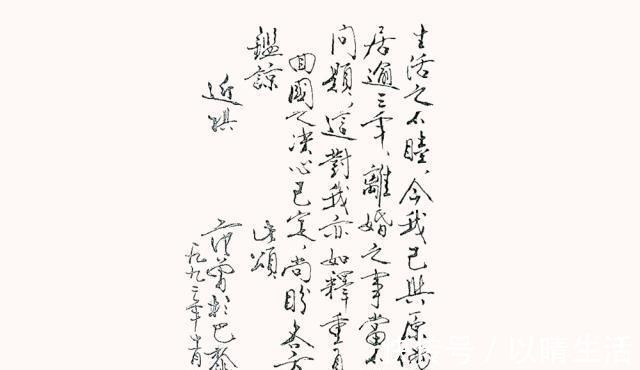 生活之不睦,今我已與原偶
居逾三年、離婚之事當不
問題,這對我亦如釋重負
回國之決心已定,尚盼各方
鑑諒
此頌
近祺
范曾於巴黎
一九九三年
搜狐号/以晴生活